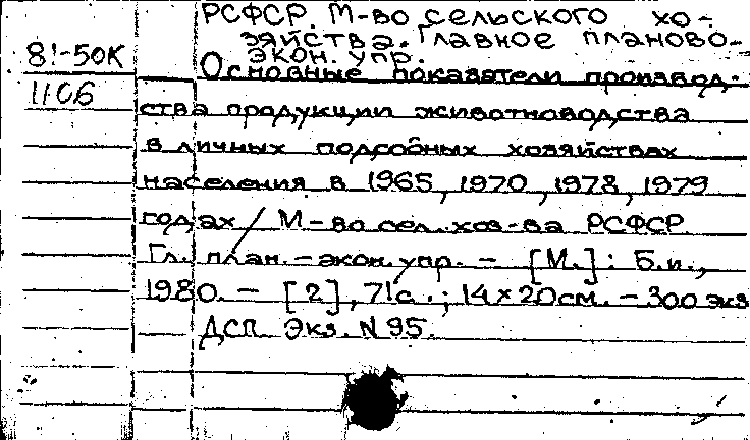 РСФСР. М-во сельского хо-
зяйства. Главное планово-
экон. упр.
8!-50К
1106
Основные показатели производ-
ства продукции животноводства
в личных подсобных хозяйствах
населения в 1965, 1970, 1978, 1979
годах / М-во сел. хоз-ва РСФСР
Гл. план.-экон. упр. - [М.]: Б.и.,
1980. - [2], 71с.; 14х20см. - 300 экз
ДСП. Экз. N 95.